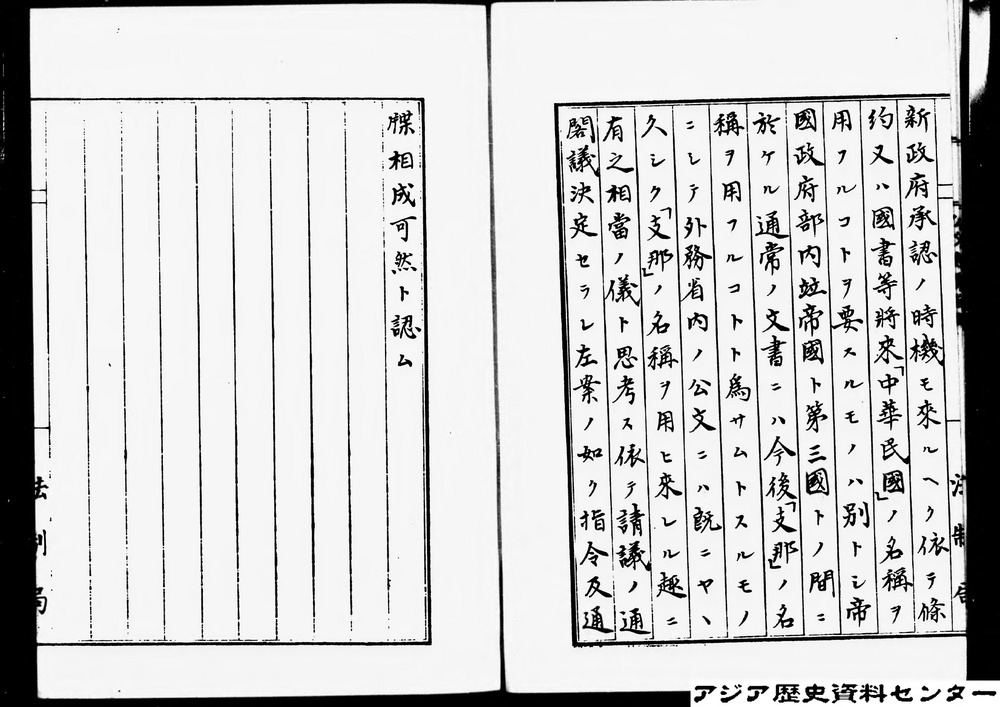 新政府承認ノ時機モ來ルヘク依テ條
約又ハ國書等將來「中華民國」ノ名稱ヲ
用フルコトヲ要スルモノハ別トシ帝
國政府部内竝帝國ト第三國トノ間ニ
於ケル通常ノ文書ニハ今後「支那」ノ名
稱ヲ用フルコトト爲サムトスルモノ
ニシテ外務省内ノ公文ニハ既ニヤヽ
久シク「支那」ノ名稱ヲ用ヒ來レル趣ニ
有之相當ノ儀ト思考ス依テ請議ノ通
閣議決定セラレ左案ノ如ク指令及通
牒相成可然ト認ム
法制局
アジア歴史資料センター